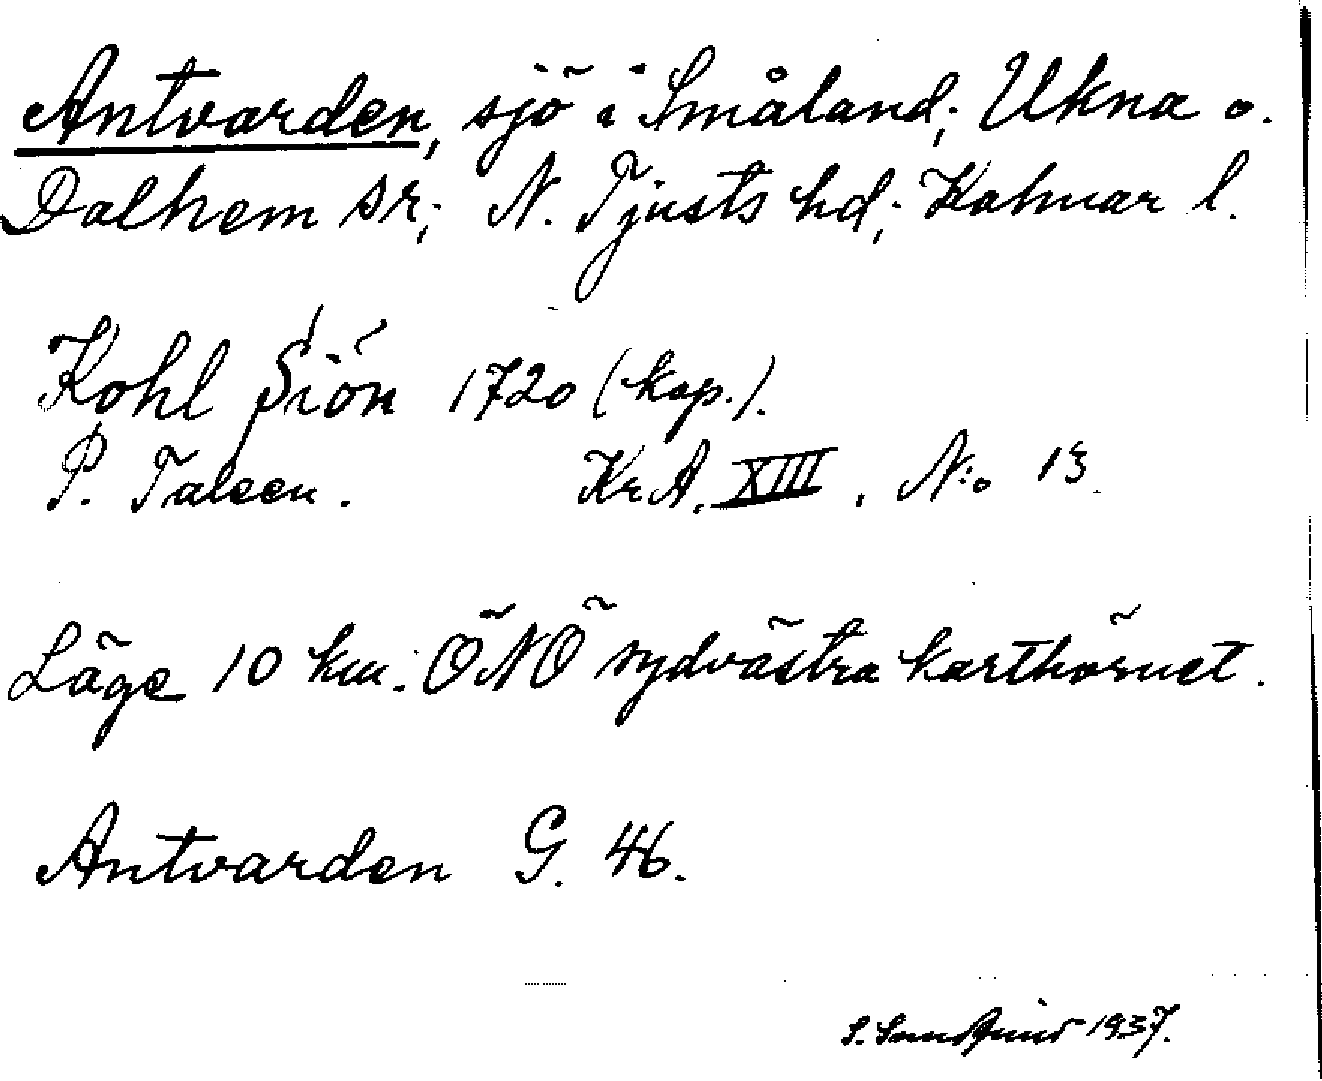 Antvarden, sjö i Småland; Ukna o.
Dalhem sr; N. Tjusts hd; Kalmar l.
Kohl Siön 1720 (kop.).
P. Taleen. KrA. XIII. N:o 13
Läge 10 km. ÖNÖ sydvästra karthörnet.
Antvarden G. 46.
S. 1937.